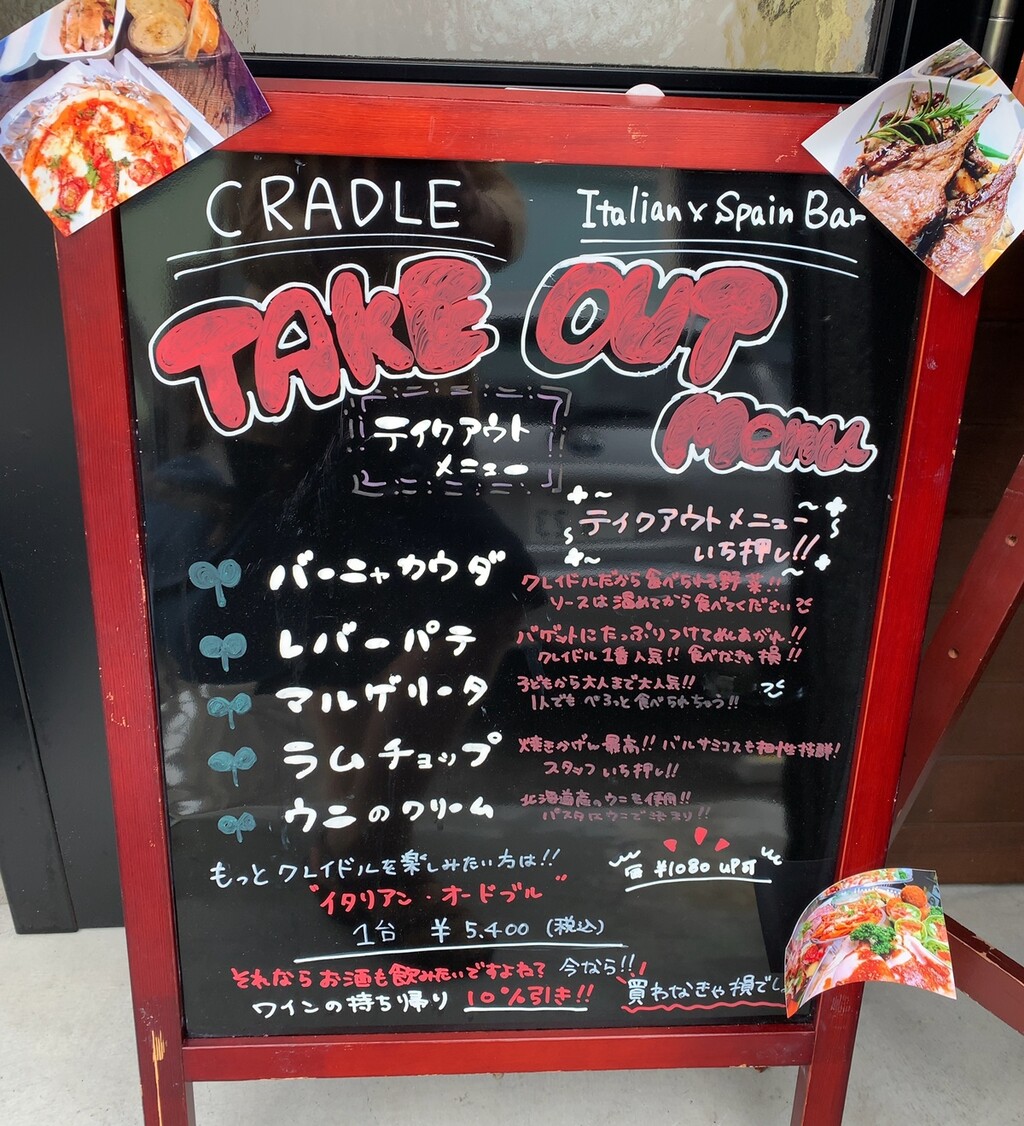 CRADLE
Italian × Spain Bar
TAKE OUT
Menu
テイクアウト
メニュー
テイクアウトメニュー
いち押し!!
バーニャカウダ
クレイドルだから食べられる野菜!!
ソースは温めてから食べてください
レバーパテ
バゲットにたっぷりつけてめしあがれ!!
クレイドル1番人気!! 食べなきゃ損!!
マルゲリータ
子どもから大人まで大人気!!
1人でもペろっと食べられちゃう!!
ラムチョップ
焼きかげん最高!! バルサミコスも相性抜群!
スタッフいち押し!!
ウニのクリーム
北海道産のウニを使用!!
パスタはウニで決まり!!
もっとクレイドルを楽しみたい方は!!
"イタリアン・オードブル"
¥1080 UP可
1台 ¥5,400 (税込)
それならお酒も飲みたいですよね? 今なら!!
ワインの持ち帰り 10%引き!!
買わなきゃ損でし